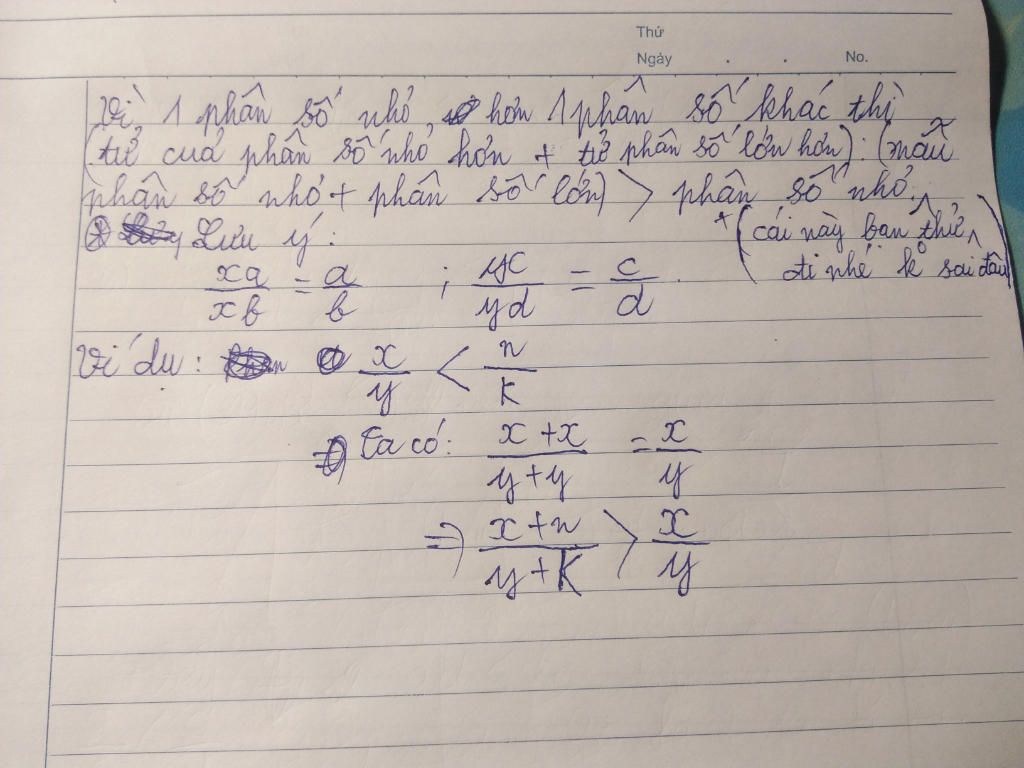 Thứ
Ngày . . No.
Vì 1 phân số nhỏ hơn 1 phân số khác thì
(tử của phân số nhỏ hơn + tử phân số lớn hơn) : (mẫu
phân số nhỏ + phân số lớn) > phân số nhỏ.
+ (cái này bạn thử
đi nhé k sai đâu)
Lưu ý :
xa/xb = a/b ; yc/yd = c/d .
Ví du : x/y < n/k
Ta có: x+x/y+y = x/y
=> x+n/y+k > x/y